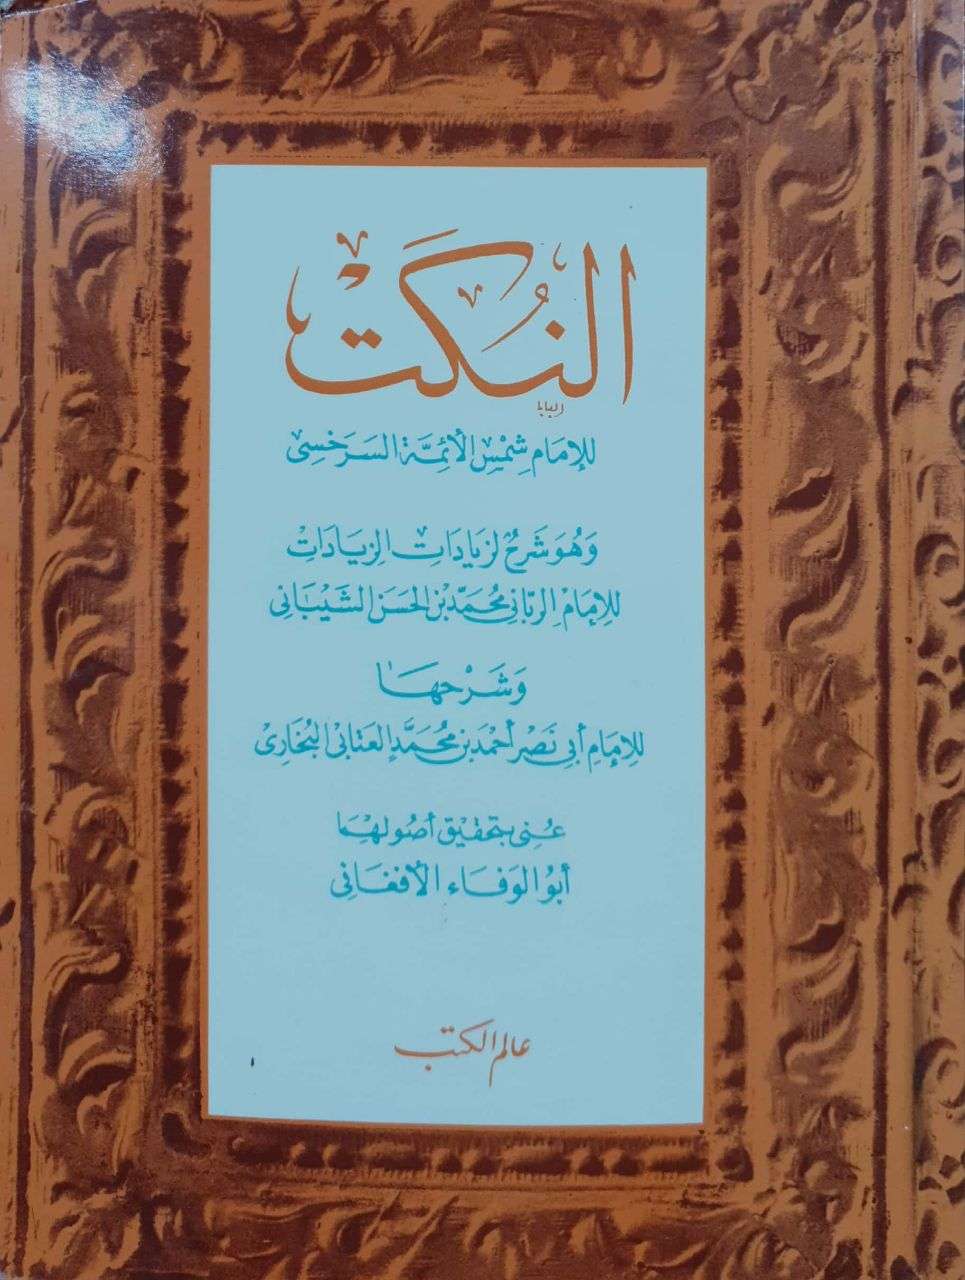 النُكت
البابا
للإمام شمس الأئمة السرخسي
وهو شرح لزيادات الزيادات
للإمام الرباني محمد بن الحسن الشيباني
وشرحها
للإمام أبي نصر أحمد بن محمد العتابي البخاري
عني بتحقيق أصولهما
أبو الوفاء الأفغاني
عالم الكتب